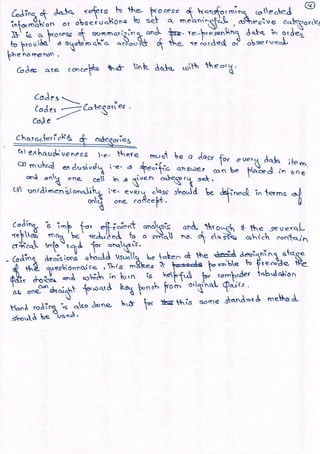 4
Coding of data refers to the process of transforming collected
information or observations to set a meaningful, cohesive categories
It is a process of summarizing and re-presenting data in order
to provide a systematic account of the recorded or observed
phenomenon.
Codes are concepts that link data with theory.
Codes
Codes Categories.
Code
Characteristics of categories
(1) exhaustiveness i.e. there must be a class for every data item
(2) mutual exclusively i.e. a specific answer can be placed in one
and only one cell in a given category set.
(3) unidimensionality i.e. every class should be defined in terms of
only one concept.
Coding is imp for efficient analysis and through it the several
replies may be reduced to a small no. of classes which contain
critical info rqd for analysis.
- Coding decisions should usually be taken at the designing stage
of the questionnaire. This makes it possible to precode the
choices and which in turn is helpful for computer tabulation
as one can straight forward key punch from original
Hand coding is also done but for this some standard method
should be used.